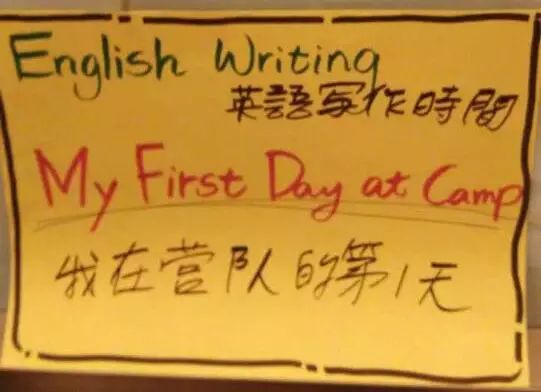 English Writing
英語写作時間
My First Day at Camp
我在营队的第1天